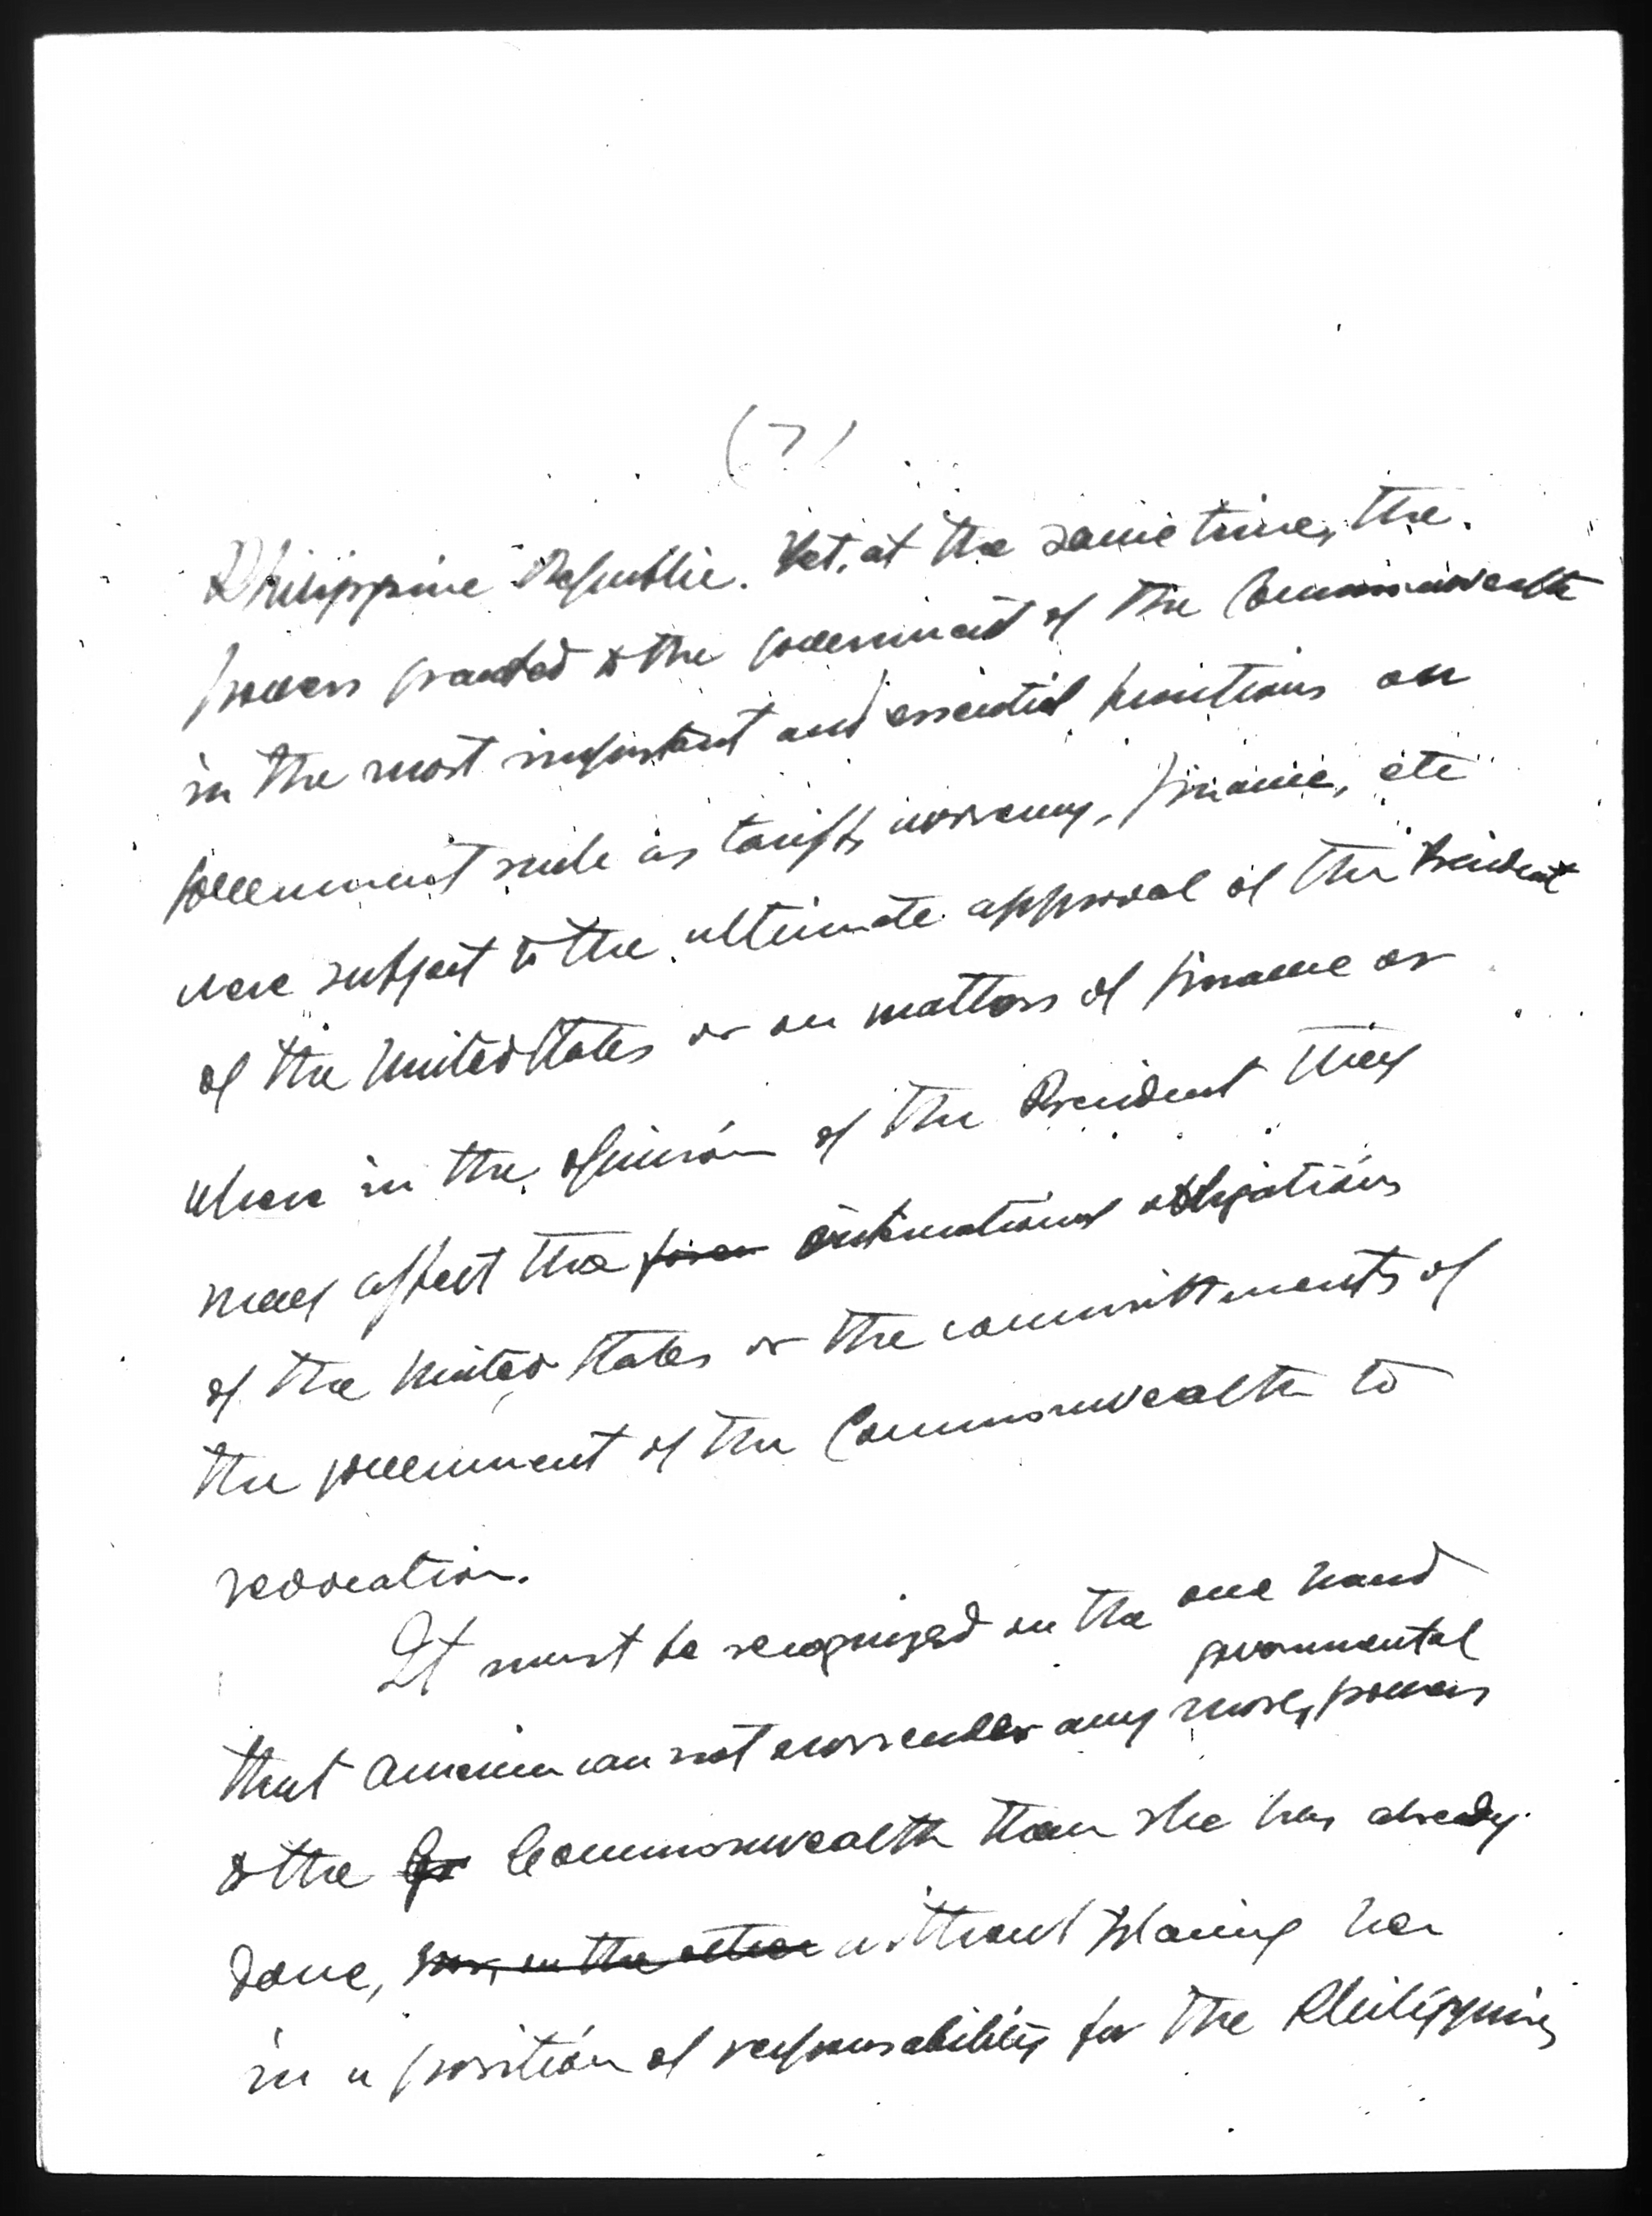 (7)
Philippine Republic. Yet, at the same time, the
powers granted to the government of the Commonwealth
in the most important and essential functions on
government such as tariff, currency, finance, etc
were subject to the ultimate approval of the President
of the United States or on matters of finance or
where in the opinión of the President they
may affect the international obligatións
of the United States or the committments of
the government of the Commonwealth to
revocation.
It must be recognized on the one hand
governmental
that America can not surrender any more, powers
to the Commonwealth than she has already
done, now, on the other without placing her
in a positión of responsability for the Philippines